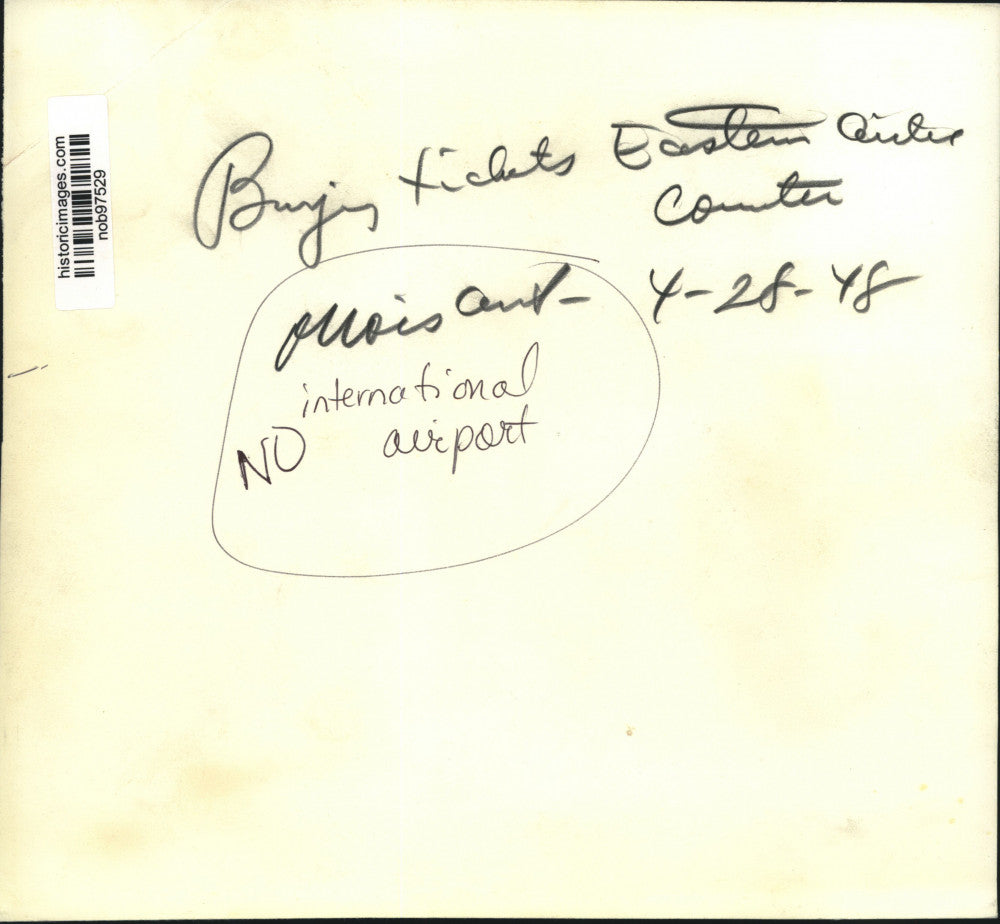 historicimages.com
nob97529
Buying tickets Eastern Airline
Counter
Moisant - 4-28-48
international
NO airport